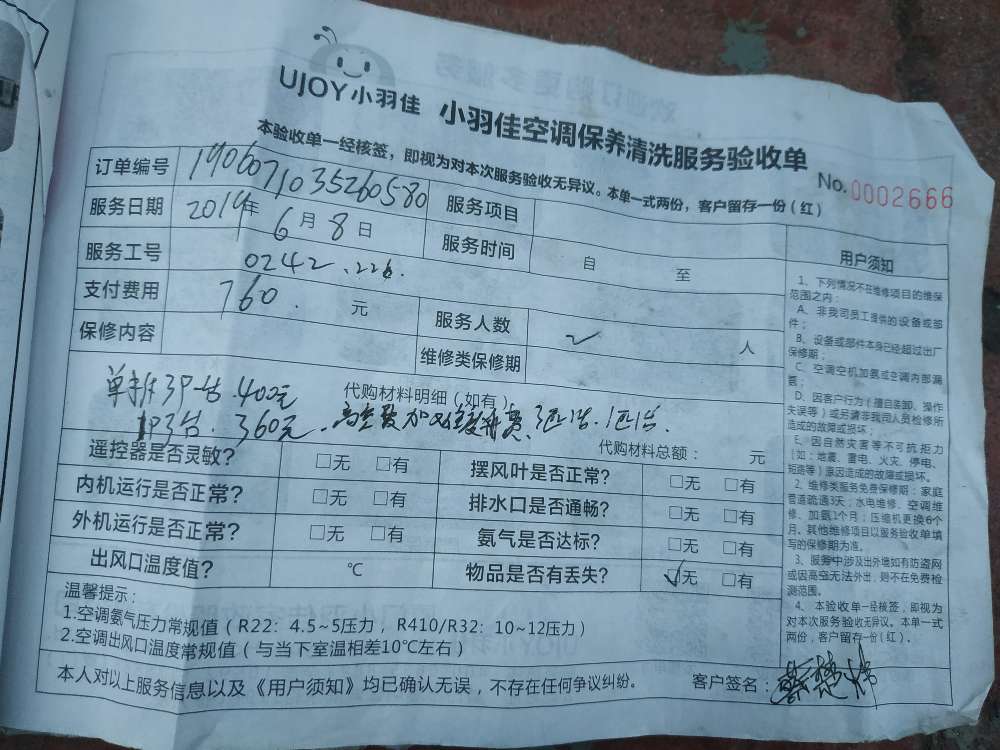 UJOY小羽佳 小羽佳空调保养清洗服务验收单
本验收单一经核签，即视为对本次服务验收无异议。本单一式两份，客户留存一份（红）
No.0002666
订单编号 1906071035260580 服务项目
服务日期 2019年6月8日 服务时间 自 至
服务工号 0242.226.
支付费用 760. 元 服务人数 2 人
保修内容 维修类保修期
代购材料明细（如有）：
单排3P一台.400元
1P3台.360元.高空费
代购材料总额： 元
遥控器是否灵敏？ □无 □有 摆风叶是否正常？ □无 □有
内机运行是否正常？ □无 □有 排水口是否通畅？ □无 □有
外机运行是否正常？ □无 □有 氨气是否达标？ □无 □有
出风口温度值？ ℃ 物品是否有丢失？ ☑无 □有
温馨提示：
1.空调氨气压力常规值（R22：4.5~5压力，R410/R32：10~12压力）
2.空调出风口温度常规值（与当下室温相差10℃左右）
本人对以上服务信息以及《用户须知》均已确认无误，不存在任何争议纠纷。 客户签名：
用户须知
1、下列情况不在维修项目的维保
范围之内：
A、非我司员工提供的设备或部
件；
B、设备或部件本身已经超过出厂
保修期；
C、空调空机加氨或空调内部漏
氨；
D、因客户行为（擅自装卸、操作
失误等）或另请非我司人员检修所
造成的故障或损坏；
E、因自然灾害等不可抗拒力
（如：地震、雷电、火灾、停电、
短路等）原因造成的故障或损坏。
2、维修类服务免费保修期：家庭
管道疏通3天；水电维修、空调维
修、加氨1个月；压缩机更换6个
月。其他维修项目以服务验收单填
写的保修期为准。
3、服务中涉及出外墙如有防盗网
或因高空无法外出，则不在免费检
测范围。
4、本验收单一经核签，即视为
对本次服务验收无异议。本单一式
两份，客户留存一份（红）。